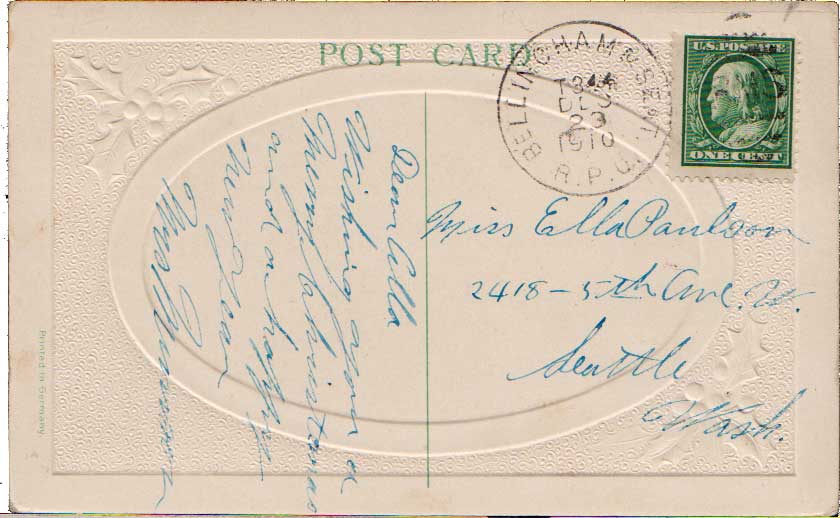 POST CARD
BELLINGHAM & SEAT.
DEC
23
1910
R.P.O.
U.S. POSTAGE
ONE CENT
Miss Ella Paulson
2418 – 5th Ave. W.
Seattle
Wash.
Dear Ella
Wishing you a
Merry Christmas
and a happy
new year
Printed in Germany